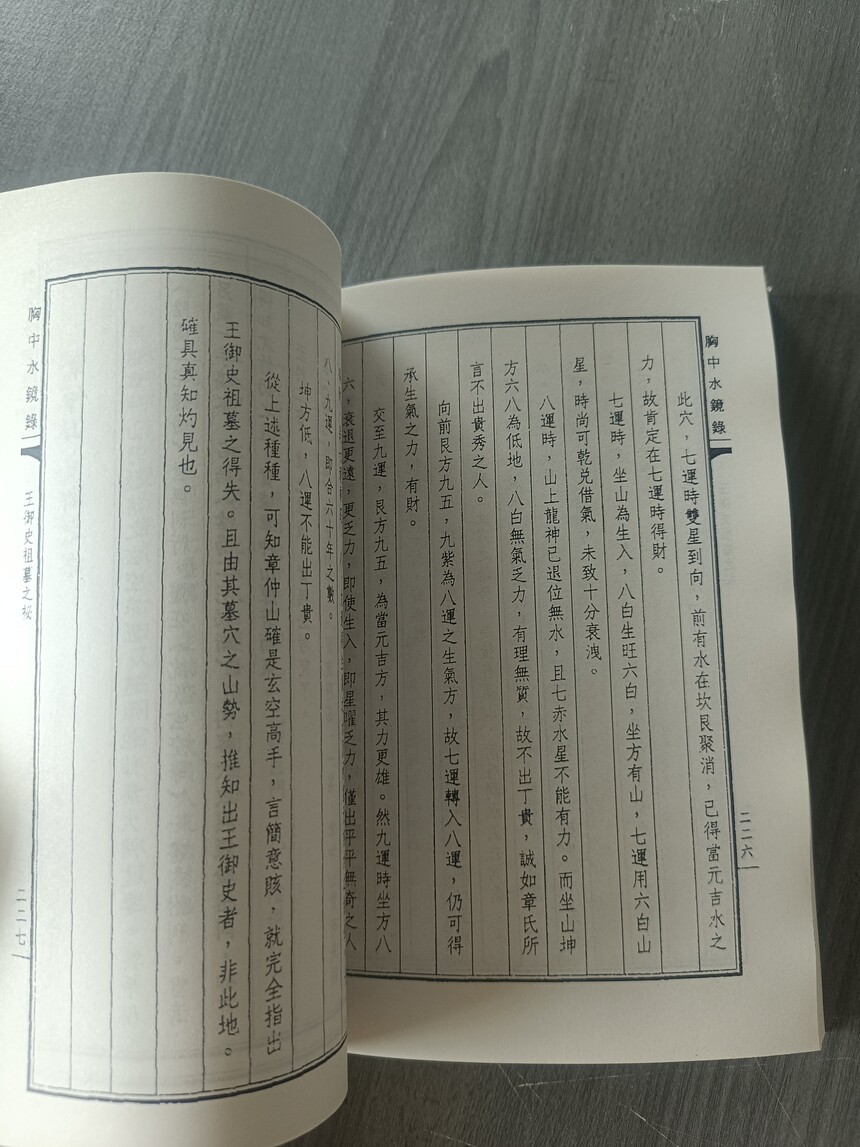 胸中水鏡錄
二二六
此穴，七運時雙星到向，前有水在坎艮聚消，已得當元吉水之
力，故肯定在七運時得財。
七運時，坐山為生入，八白生旺六白，坐方有山，七運用六白山
星，時尚可乾兌借氣，未致十分衰洩。
八運時，山上龍神已退位無水，且七赤水星不能有力。而坐山坤
方六八為低地，八白無氣乏力，有理無質，故不出丁貴，誠如章氏所
言不出貴秀之人。
向前艮方九五，九紫為八運之生氣方，故七運轉入八運，仍可得
承生氣之力，有財。
交至九運，艮方九五，為當元吉方，其力更雄。然九運時坐方八
六，衰退更遠，更乏力，即使生入，即星曜乏力，僅出平平無奇之人
八、九運，即合六十年之數。
坤方低，八運不能出丁貴。
從上述種種，可知章仲山確是玄空高手，言簡意賅，就完全指出
王御史祖墓之得失。且由其墓穴之山勢，推知出王御史者，非此地。
確具真知灼見也。
胸中水鏡錄
王御史祖墓之秘
二二七